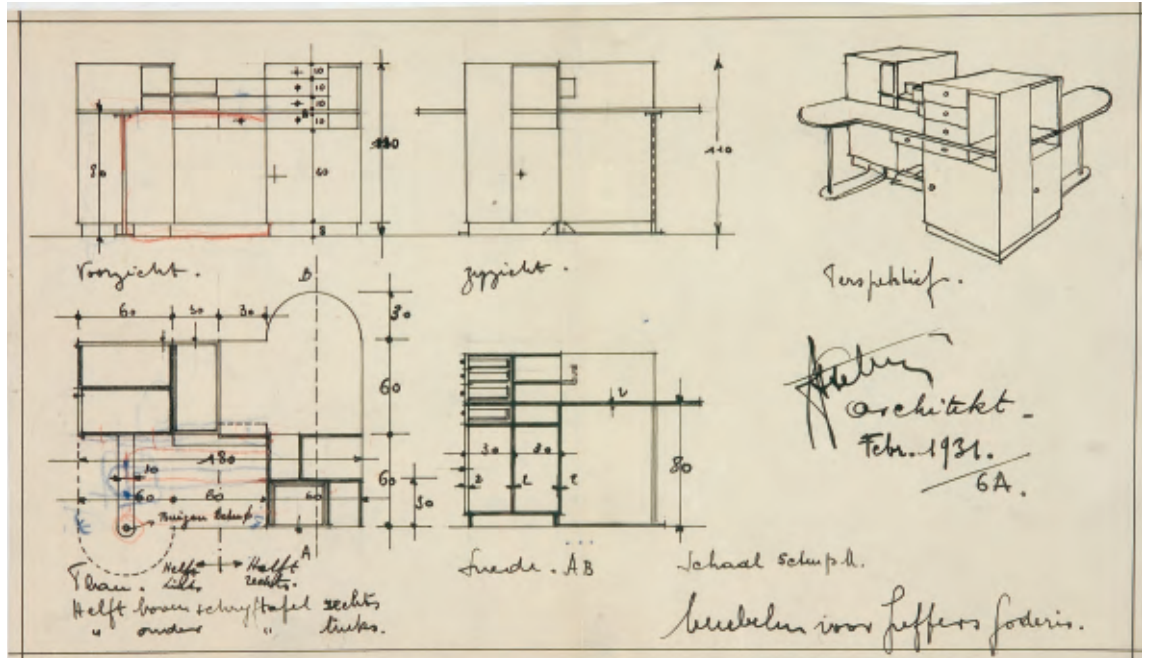 10
10
10
10
80
60
8
110
Voorzicht.
zyzicht.
Perspektief.
60 30 30
B
30
60
60
30
180
30
60 60 60
A
Plan. Helft links Helft rechts.
Helft boven schryftafel rechts
" onder " links.
30 30
2 2 2
2
80
Snede. AB
Schaal
architekt -
Febr. 1931.
6A.
Meubelen voor Goderis.